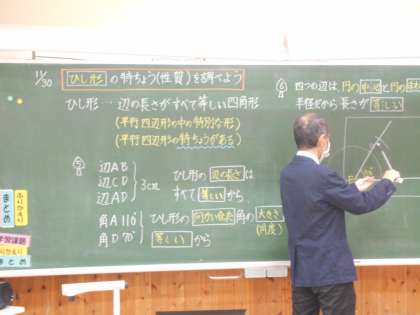 11/30
ひし形 の特ちょう(性質)を調べよう
ひし形…辺の長さがすべて等しい四角形
(平行四辺形の中の特別な形)
(平行四辺形の特ちょうがある)
⑤
辺AB
辺CD
辺AD
3cm
ひし形の 辺の長さ は
すべて 等しい から
角A 110°
角D 70°
ひし形の 向かい合った 角の 大きさ
(角度)
等しい から
⑥ 四つの辺は、円の 中心 と円の
半径だから長さが 等しい
まとめ
ふりかえり
学習課題
ふりかえり
まとめ